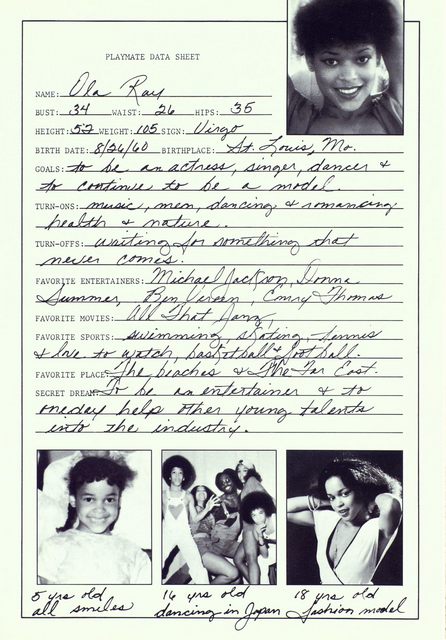 PLAYMATE DATA SHEET
NAME: Ola Ray
BUST: 34 WAIST: 26 HIPS: 35
HEIGHT: 52 WEIGHT: 105 SIGN: Virgo
BIRTH DATE: 8/26/60 BIRTHPLACE: St. Louis, Mo.
GOALS: to be an actress, singer, dancer &
to continue to be a model.
TURN-ONS: music, men, dancing & romancing
health & nature.
TURN-OFFS: waiting for something that
never comes.
FAVORITE ENTERTAINERS: Michael Jackson, Donna
Summer, Ben Vereen, Emry Thomas
FAVORITE MOVIES: All That Jazz
FAVORITE SPORTS: swimming, skating, tennis
& love to watch, basketball & football.
FAVORITE PLACE: The beaches & The Far East.
SECRET DREAM: To be an entertainer & to
oneday help other young talents
into the industry.
5 yrs old
all smiles
16 yrs old
dancing in Japan
18 yrs old
fashion model